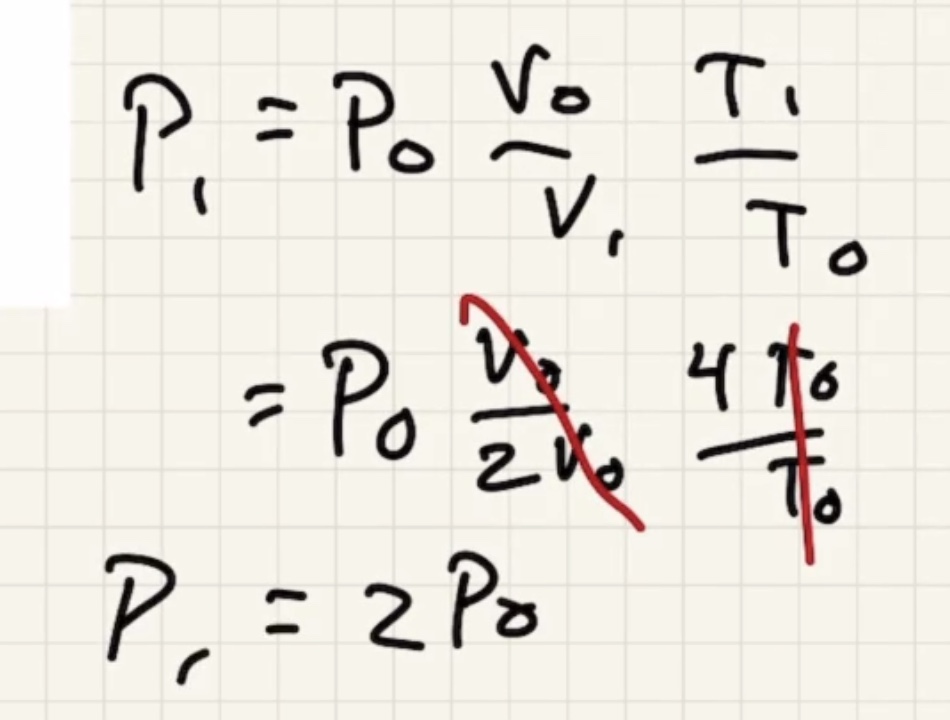 P₁ = P₀ V₀/V₁ T₁/T₀
= P₀ V₀/2V₀ 4T₀/T₀
P₁ = 2P₀